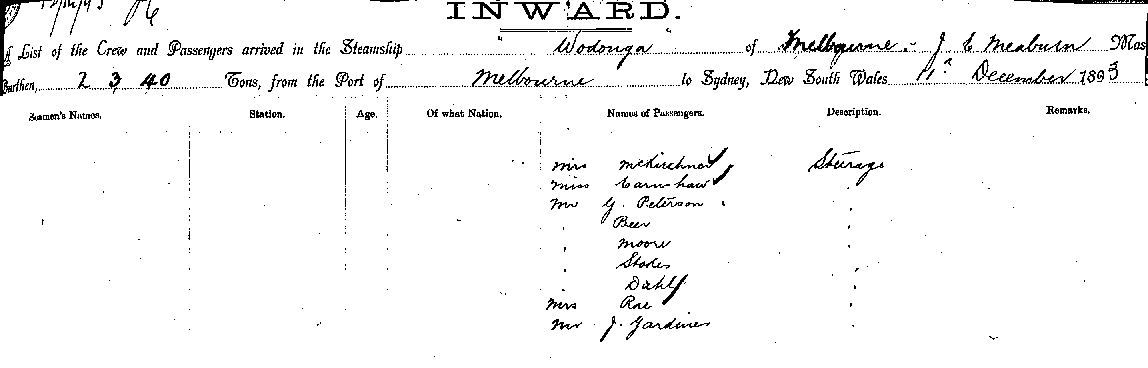 INWARD.
A List of the Crew and Passengers arrived in the Steamship "Wodonga" of Melbourne. J. C Meaburn Mas
Burthen, 2340 Tons, from the Port of Melbourne to Sydney, New South Wales 11th December 1893
Seamen's Names. Station. Age. Of what Nation. Names of Passengers. Description. Remarks.
Mrs Steerage
Miss Earnshaw "
Mr G. Peterson "
" Beer "
" Moore "
" Stokes "
" Dahl "
Mrs Rae "
Mr J. Gardiner "